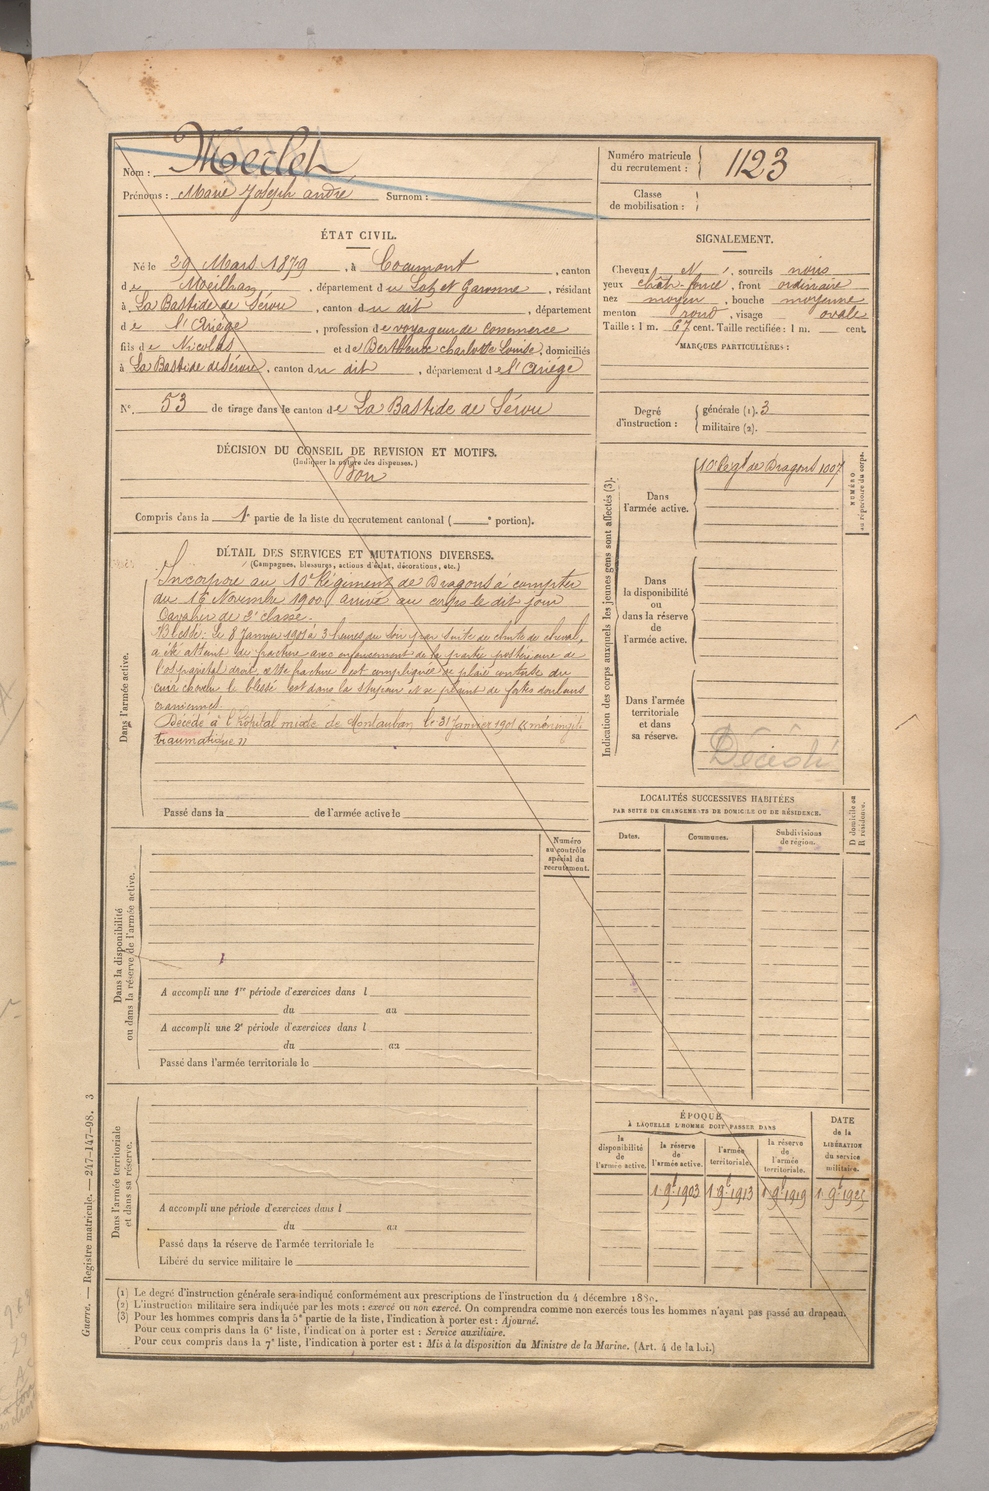 Nom : Merlet
Prénoms : Marie Joseph andré Surnom :
Numéro matricule du recrutement : 1123
Classe de mobilisation :
ÉTAT CIVIL.
Né le 29 Mars 1879, à Cocumont, canton
de Meilhan, département du Lot et Garonne, résidant
à La Bastide de Sérou, canton du dit, département
de l'Ariège, profession de voyageur de commerce
fils de Nicolas et de Bertheux charlotte Louise, domiciliés
à La Bastide de Sérou, canton du dit, département de l'Ariège
N°. 53 de tirage dans le canton de La Bastide de Sérou
SIGNALEMENT.
Cheveux N, sourcils noirs
yeux chât-foncé, front ordinaire
nez moyen, bouche moyenne
menton rond, visage ovale
Taille : 1 m. 67 cent. Taille rectifiée : 1 m. cent.
MARQUES PARTICULIÈRES :
Degré d'instruction : générale (1). 3
militaire (2).
DÉCISION DU CONSEIL DE REVISION ET MOTIFS.
(Indiquer la nature des dispenses.)
Bon
Compris dans la 1e partie de la liste du recrutement cantonal ( e portion).
DÉTAIL DES SERVICES ET MUTATIONS DIVERSES.
(Campagnes, blessures, actions d'éclat, décorations, etc.)
Dans l'armée active.
Incorporé au 10e Régiment de Dragons à compter
du 16 Novembre 1900, arrivé au corps le dit jour
Cavalier de 2e classe.
Blessé : le 8 Janvier 1901 à 3 heures du soir par suite de chute de cheval,
a été atteint de fracture avec enfoncement de la partie postérieure de
l'os pariétal droit, cette fracture est compliquée de plaie contuse du
cuir chevelu le blessé est dans la stupeur et se plaint de fortes douleurs
craniennes.
Décédé à l'hôpital mixte de Montauban le 31 Janvier 1901 «méningite
traumatique»
Passé dans la de l'armée active le
Indication des corps auxquels les jeunes gens sont affectés (3).
NUMÉRO au répertoire du corps.
Dans l'armée active.
10e Régt de Dragons 1007
Dans la disponibilité ou dans la réserve de l'armée active.
Dans l'armée territoriale et dans sa réserve.
Décédé
LOCALITÉS SUCCESSIVES HABITÉES
PAR SUITE DE CHANGEMENTS DE DOMICILE OU DE RÉSIDENCE.
Dates. Communes. Subdivisions de région. D domicile ou R résidence.
Dans la disponibilité ou dans la réserve de l'armée active.
Numéro au contrôle spécial du recrutement.
A accompli une 1re période d'exercices dans l
du au
A accompli une 2e période d'exercices dans l
du au
Passé dans l'armée territoriale le
Dans l'armée territoriale et dans sa réserve.
A accompli une période d'exercices dans l
du au
Passé dans la réserve de l'armée territoriale le
Libéré du service militaire le
ÉPOQUE
À LAQUELLE L'HOMME DOIT PASSER DANS
la disponibilité de l'armée active.
la réserve de l'armée active.
l'armée territoriale.
la réserve de l'armée territoriale.
DATE de la LIBÉRATION du service militaire.
1 9e 1903 1 9e 1913 1 9e 1919
(1) Le degré d'instruction générale sera indiqué conformément aux prescriptions de l'instruction du 4 décembre 1889.
(2) L'instruction militaire sera indiquée par les mots : exercé ou non exercé. On comprendra comme non exercés tous les hommes n'ayant pas passé au drapeau.
(3) Pour les hommes compris dans la 5e partie de la liste, l'indication à porter est : Ajourné.
Pour ceux compris dans la 6e liste, l'indication à porter est : Service auxiliaire.
Pour ceux compris dans la 7e liste, l'indication à porter est : Mis à la disposition du Ministre de la Marine. (Art. 4 de la loi.)
Guerre. — Registre matricule. — 247-147-98. 3